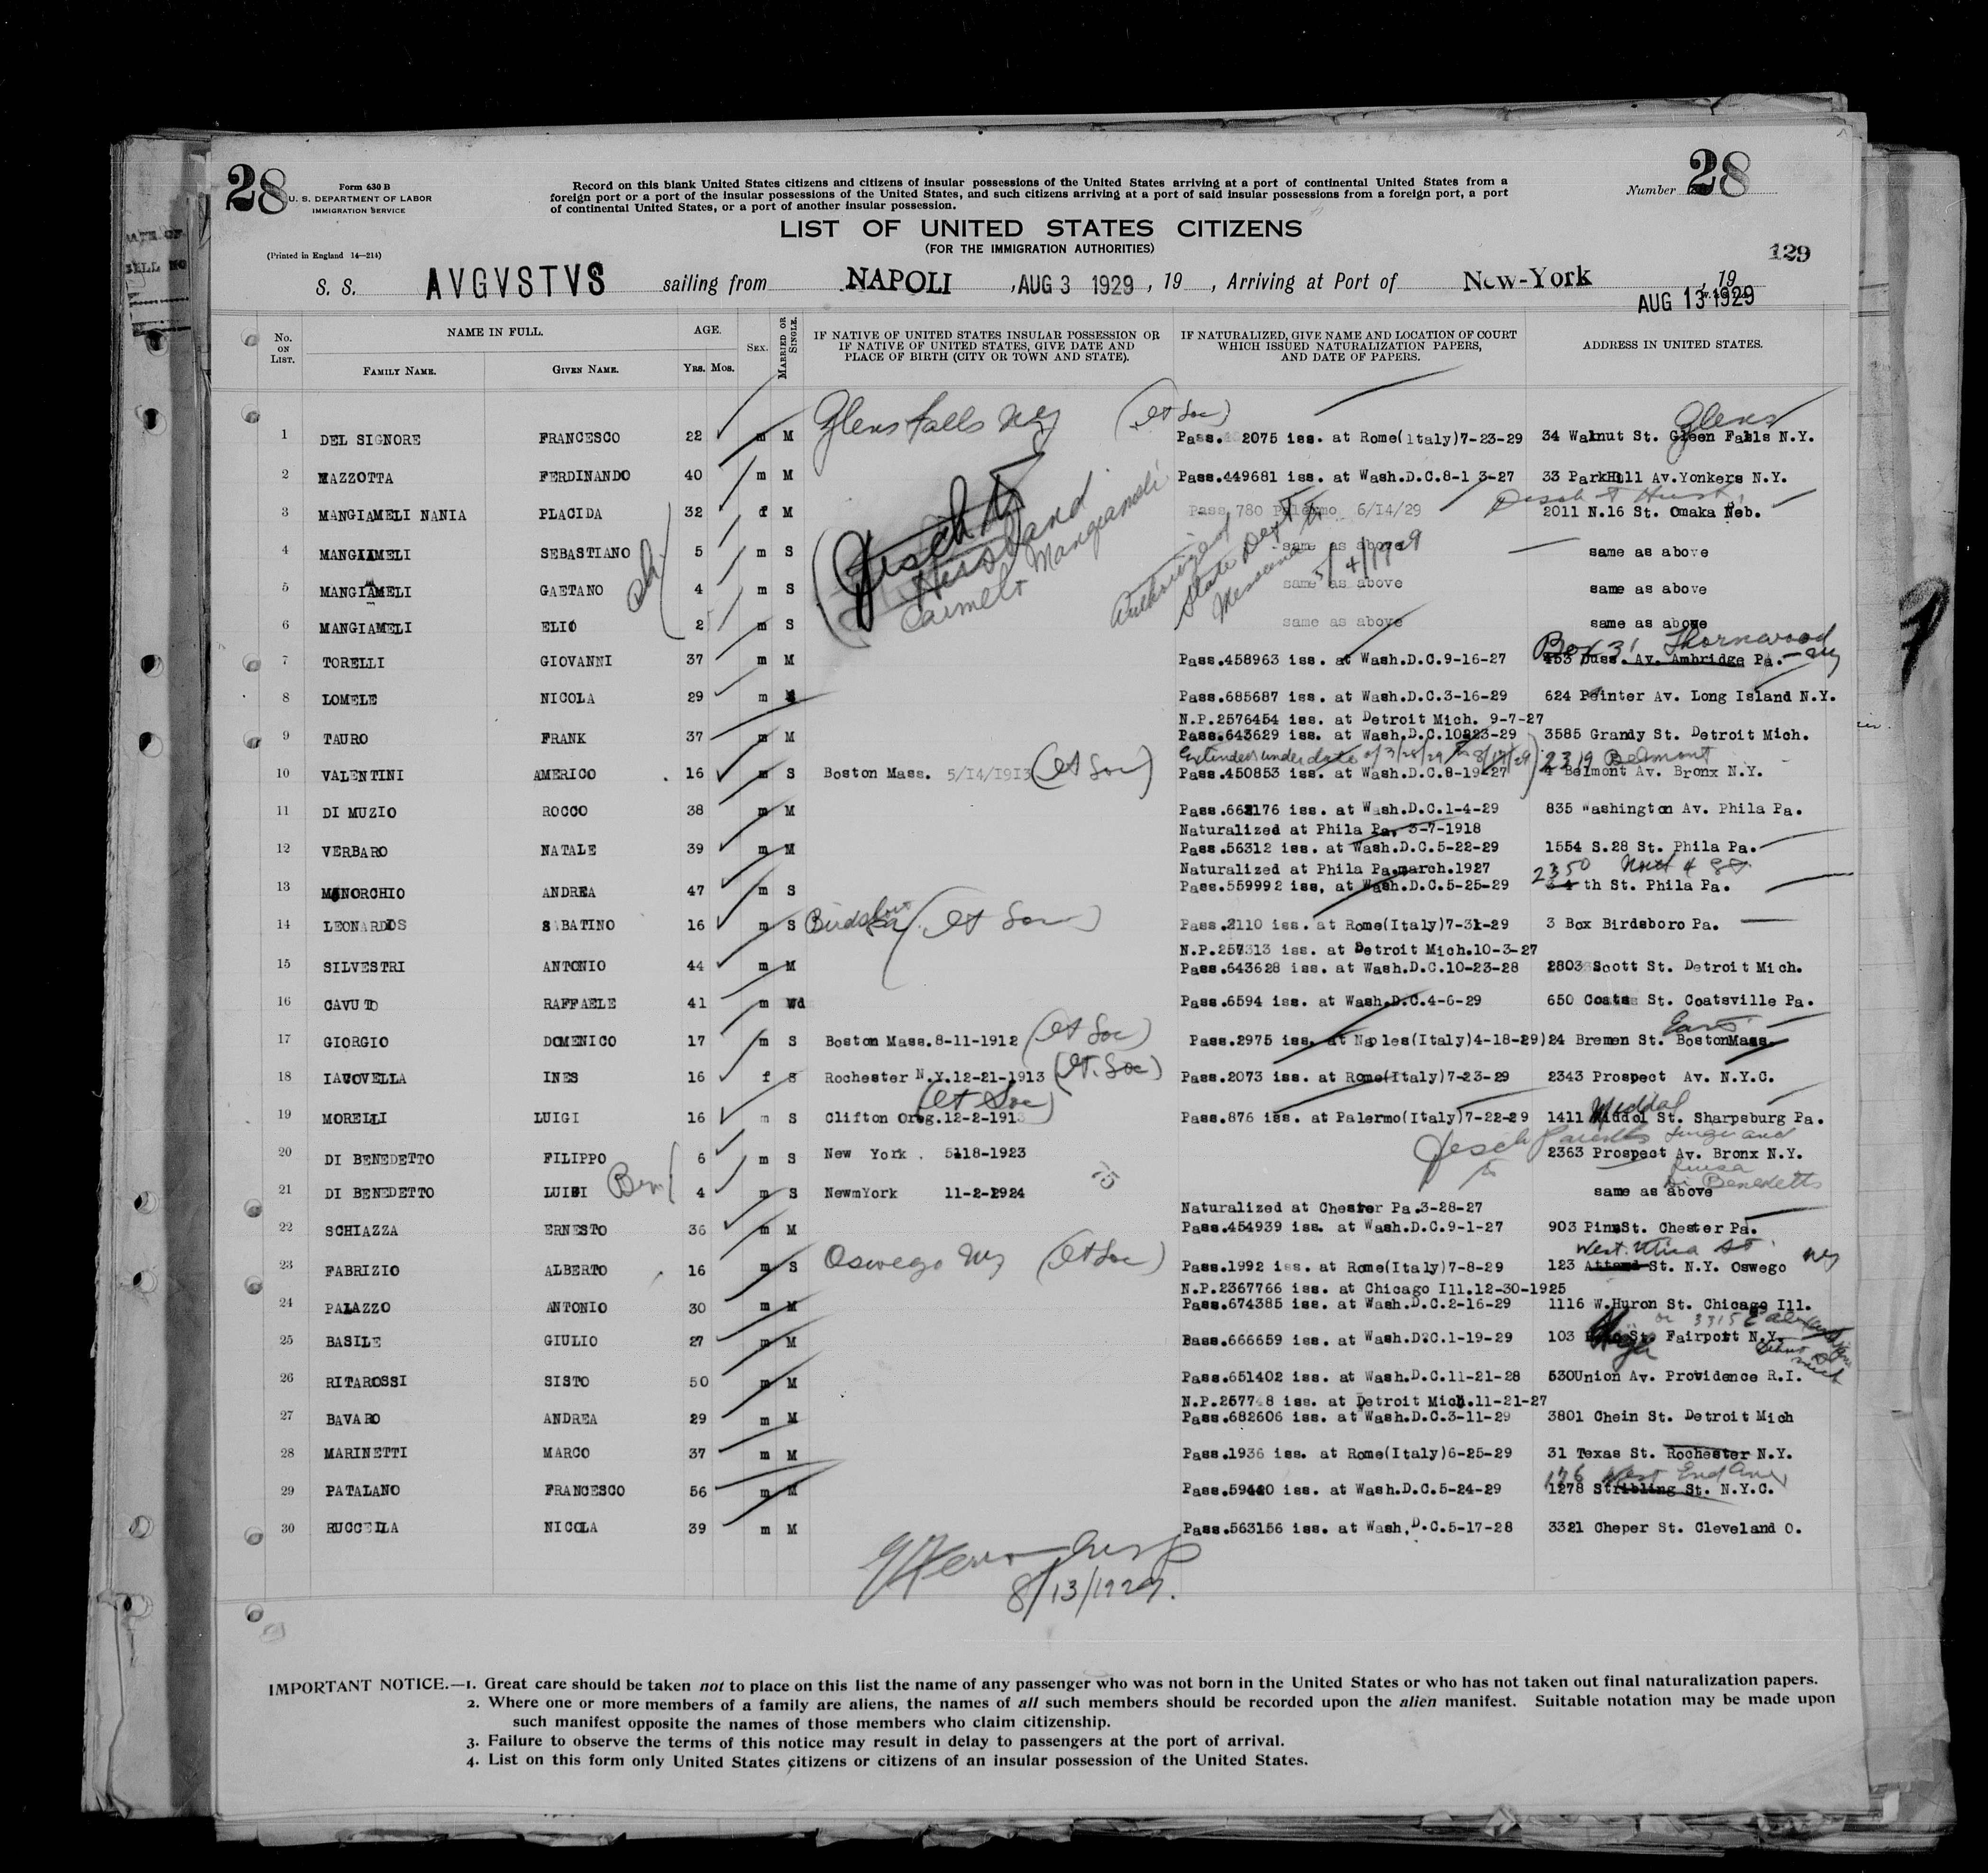 28
Form 630 B
U. S. DEPARTMENT OF LABOR
IMMIGRATION SERVICE
(Printed in England 14—214)
Record on this blank United States citizens and citizens of insular possessions of the United States arriving at a port of continental United States from a
foreign port or a port of the insular possessions of the United States, and such citizens arriving at a port of said insular possessions from a foreign port, a port
of continental United States, or a port of another insular possession.
Number 28
LIST OF UNITED STATES CITIZENS
(FOR THE IMMIGRATION AUTHORITIES)
129
S. S. AVGVSTVS sailing from NAPOLI , AUG 3 1929 , 19 , Arriving at Port of New-York , 19
AUG 13 1929
No. ON LIST. NAME IN FULL. AGE. SEX. MARRIED OR SINGLE. IF NATIVE OF UNITED STATES INSULAR POSSESSION OR IF NATIVE OF UNITED STATES, GIVE DATE AND PLACE OF BIRTH (CITY OR TOWN AND STATE). IF NATURALIZED, GIVE NAME AND LOCATION OF COURT WHICH ISSUED NATURALIZATION PAPERS, AND DATE OF PAPERS. ADDRESS IN UNITED STATES.
FAMILY NAME. GIVEN NAME. YRS. MOS.
Glens Falls NY Glens
1 DEL SIGNORE FRANCESCO 22 m M Pass. 2075 iss. at Rome(Italy)7-23-29 34 Walnut St. Gleen Falls N.Y.
2 MAZZOTTA FERDINANDO 40 m M Pass.449681 iss. at Wash.D.C.8-1 3-27 33 ParkHill Av.Yonkers N.Y.
3 MANGIAMELI NANIA PLACIDA 32 f M Pass 780 Palermo 6/14/29 2011 N.16 St. Omaka Neb.
4 MANGIAMELI SEBASTIANO 5 m S same as above same as above
5 MANGIAMELI GAETANO 4 m S same as above same as above
6 MANGIAMELI ELIO 2 m S same as above same as above
Husband
Carmelo Mangiameli
Authorized
State Dept
Box 31 Thornwood NY
7 TORELLI GIOVANNI 37 m M Pass.458963 iss. at Wash.D.C.9-16-27 453 Duss. Av. Ambridge Pa.
8 LOMELE NICOLA 29 m Pass.685687 iss. at Wash.D.C.3-16-29 624 Painter Av. Long Island N.Y.
N.P.2576454 iss. at Detroit Mich. 9-7-27
9 TAURO FRANK 37 m M Pass.643629 iss. at Wash.D.C.10223-29 3585 Grandy St. Detroit Mich.
Extended under date of 3/28/29 to 8/19/29 2319 Belmont
10 VALENTINI AMERICO 16 m S Boston Mass. 5/14/1913 Pass.450853 iss. at Wash.D.C.8-19-27 Belmont Av. Bronx N.Y.
11 DI MUZIO ROCCO 38 m M Pass.662176 iss. at Wash.D.C.1-4-29 835 Washington Av. Phila Pa.
Naturalized at Phila Pa. 3-7-1918
12 VERBARO NATALE 39 m M Pass.56312 iss. at Wash.D.C.5-22-29 1554 S.28 St. Phila Pa.
Naturalized at Phila Pa.march.1927 2350 North 4 St
13 MANORCHIO ANDREA 47 m S Pass.559992 iss, at Wash.D.C.5-25-29 th St. Phila Pa.
14 LEONARDOS SABATINO 16 m S Pass.2110 iss. at Rome(Italy)7-31-29 3 Box Birdsboro Pa.
N.P.257313 iss. at Detroit Mich.10-3-27
15 SILVESTRI ANTONIO 44 m M Pass.643628 iss. at Wash.D.C.10-23-28 2803 Scott St. Detroit Mich.
16 CAVUTO RAFFAELE 41 m Wd Pass.6594 iss. at Wash.D.C.4-6-29 650 Coates St. Coatsville Pa.
East
17 GIORGIO DOMENICO 17 m S Boston Mass.8-11-1912 Pass.2975 iss. at Naples(Italy)4-18-29)24 Bremen St. BostonMass.
18 IACOVELLA INES 16 f S Rochester N.Y.12-21-1913 Pass.2073 iss. at Rome(Italy)7-23-29 2343 Prospect Av. N.Y.C.
Middal
19 MORELLI LUIGI 16 m S Clifton Oreg.12-2-1913 Pass.876 iss. at Palermo(Italy)7-22-29 1411 Middol St. Sharpsburg Pa.
Parents
20 DI BENEDETTO FILIPPO 6 m S New York . 5118-1923 2363 Prospect Av. Bronx N.Y.
Di Benedetto
21 DI BENEDETTO LUIGI 4 m S NewmYork 11-2-2924 same as above
Naturalized at Chester Pa.3-28-27
22 SCHIAZZA ERNESTO 36 m M Pass.454939 iss. at Wash.D.C.9-1-27 903 PinnSt. Chester Pa.
Oswego NY West Utica St. NY
23 FABRIZIO ALBERTO 16 m S Pass.1992 iss. at Rome(Italy)7-8-29 123 St. N.Y. Oswego
N.P.2367766 iss. at Chicago Ill.12-30-1925
24 PALAZZO ANTONIO 30 m M Pass.674385 iss. at Wash.D.C.2-16-29 1116 W.Huron St. Chicago Ill.
25 BASILE GIULIO 27 m M Pass.666659 iss. at Wash.D?C.1-19-29 103 St. Fairport N.Y.
26 RITAROSSI SISTO 50 m M Pass.651402 iss. at Wash.D.C.11-21-28 530Union Av. Providence R.I.
N.P.257748 iss. at Detroit Mich.11-21-27
27 BAVARO ANDREA 29 m M Pass.682606 iss. at Wash.D.C.3-11-29 3801 Chein St. Detroit Mich
28 MARINETTI MARCO 37 m M Pass.1936 iss. at Rome(Italy)6-25-29 31 Texas St. Rochester N.Y.
176 West End Ave
29 PATALANO FRANCESCO 56 m M Pass.59440 iss. at Wash.D.C.5-24-29 1278 Stribling St. N.Y.C.
30 RUCCELLA NICOLA 39 m M Pass.563156 iss. at Wash.D.C.5-17-28 3321 Cheper St. Cleveland O.
8/13/1929.
IMPORTANT NOTICE.—1. Great care should be taken not to place on this list the name of any passenger who was not born in the United States or who has not taken out final naturalization papers.
2. Where one or more members of a family are aliens, the names of all such members should be recorded upon the alien manifest. Suitable notation may be made upon
such manifest opposite the names of those members who claim citizenship.
3. Failure to observe the terms of this notice may result in delay to passengers at the port of arrival.
4. List on this form only United States citizens or citizens of an insular possession of the United States.